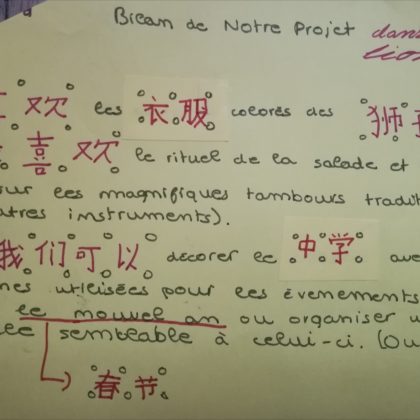 Bilan de Notre Projet dans
lion
欢 les 衣服 colorés des 狮
喜欢 le rituel de la salade et
sur les magnifiques tambours tradit
autres instruments).
我们可以 décorer le 中学 ave
nes utilisées pour les évènements
le nouvel an ou organiser u
ée semblable à celui-ci. (Ou
春节